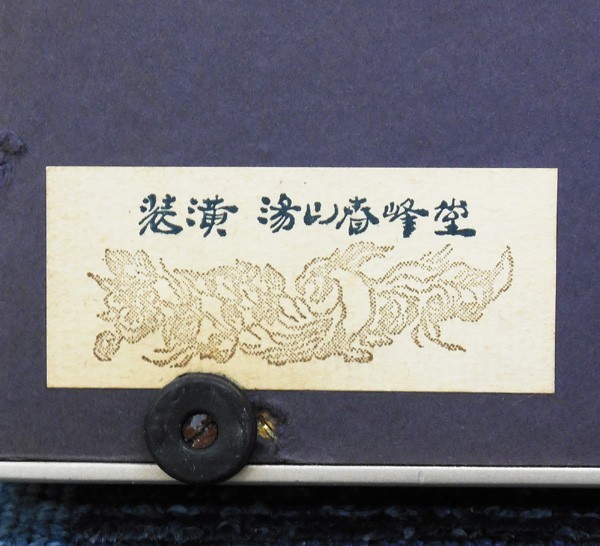 装潢 湯山春峰堂